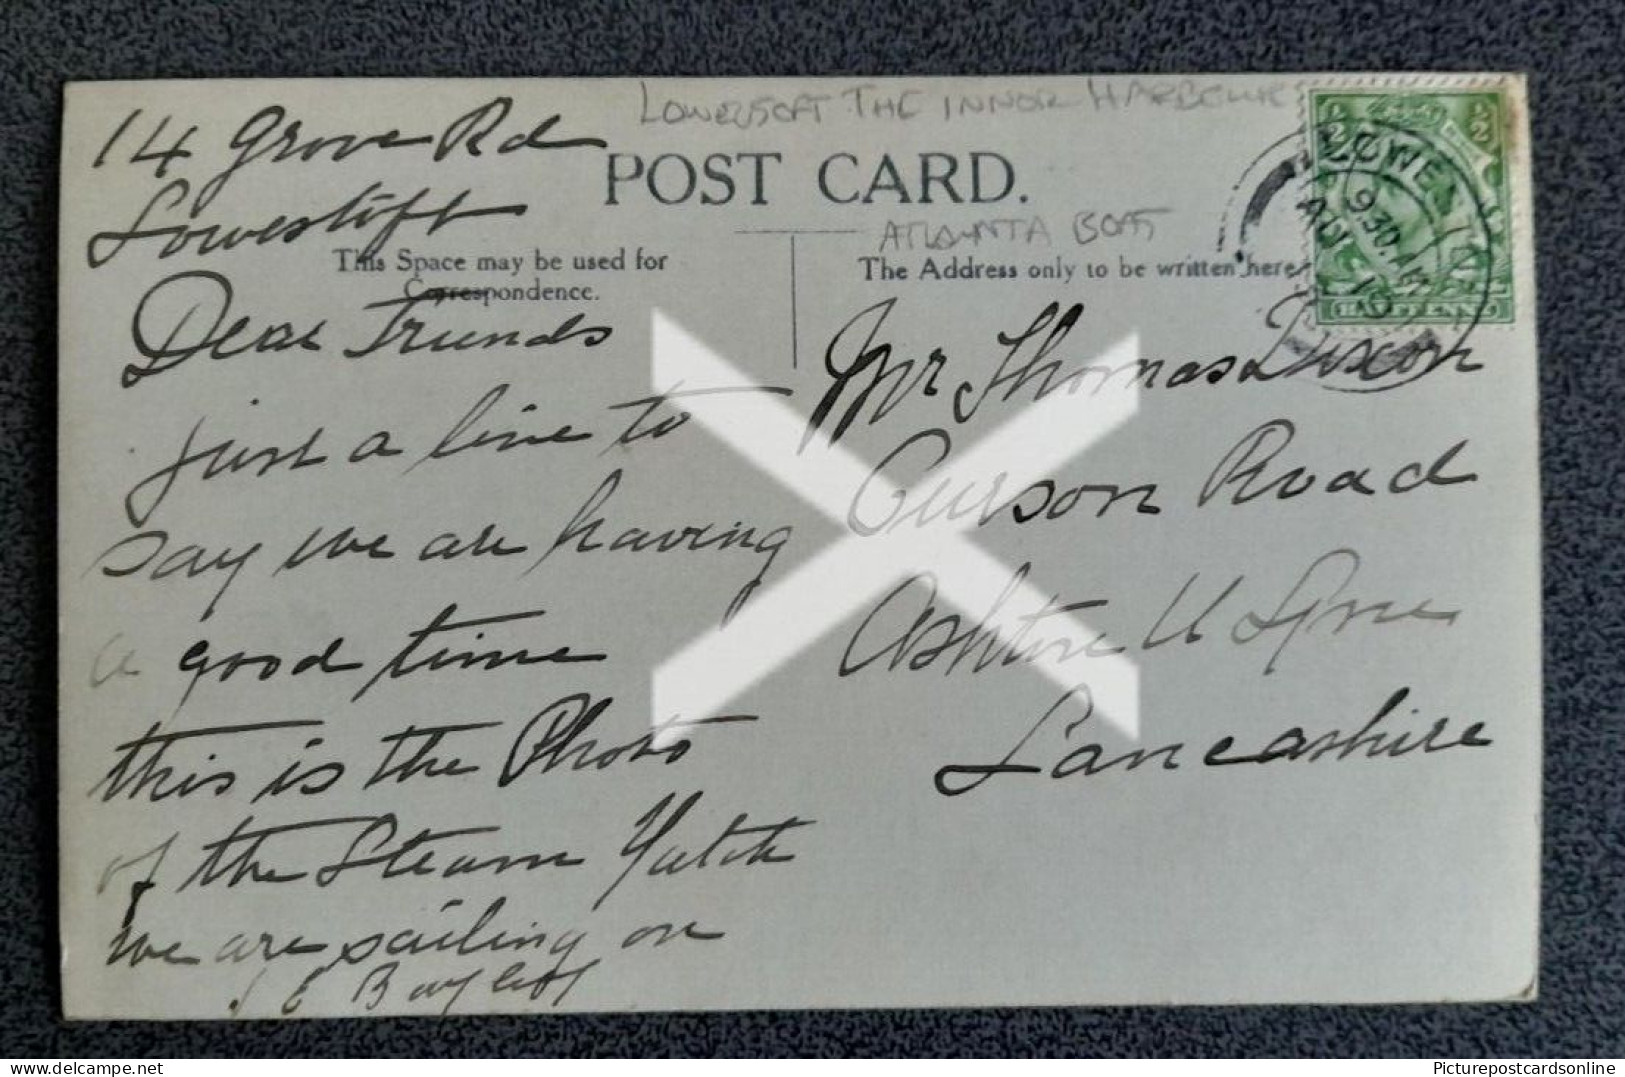 LOWERSOFT THE INNOR HARBOUR
14 Grove Rd
Lowestoft
POST CARD.
ATLANTA BOAT
This Space may be used for
Correspondence.
The Address only to be written here
Dear Friends
just a line to
say we are having
a good time
this is the Photo
of the Steam Yatch
we are sailing on
Mr Thomas Dixon
Curson Road
Ashton U Lyne
Lancashire
1/2 1/2
LOWESTOFT
9 30 AM
AU 10
HALFPENNY
delcampe.net
Picturepostcardsonline